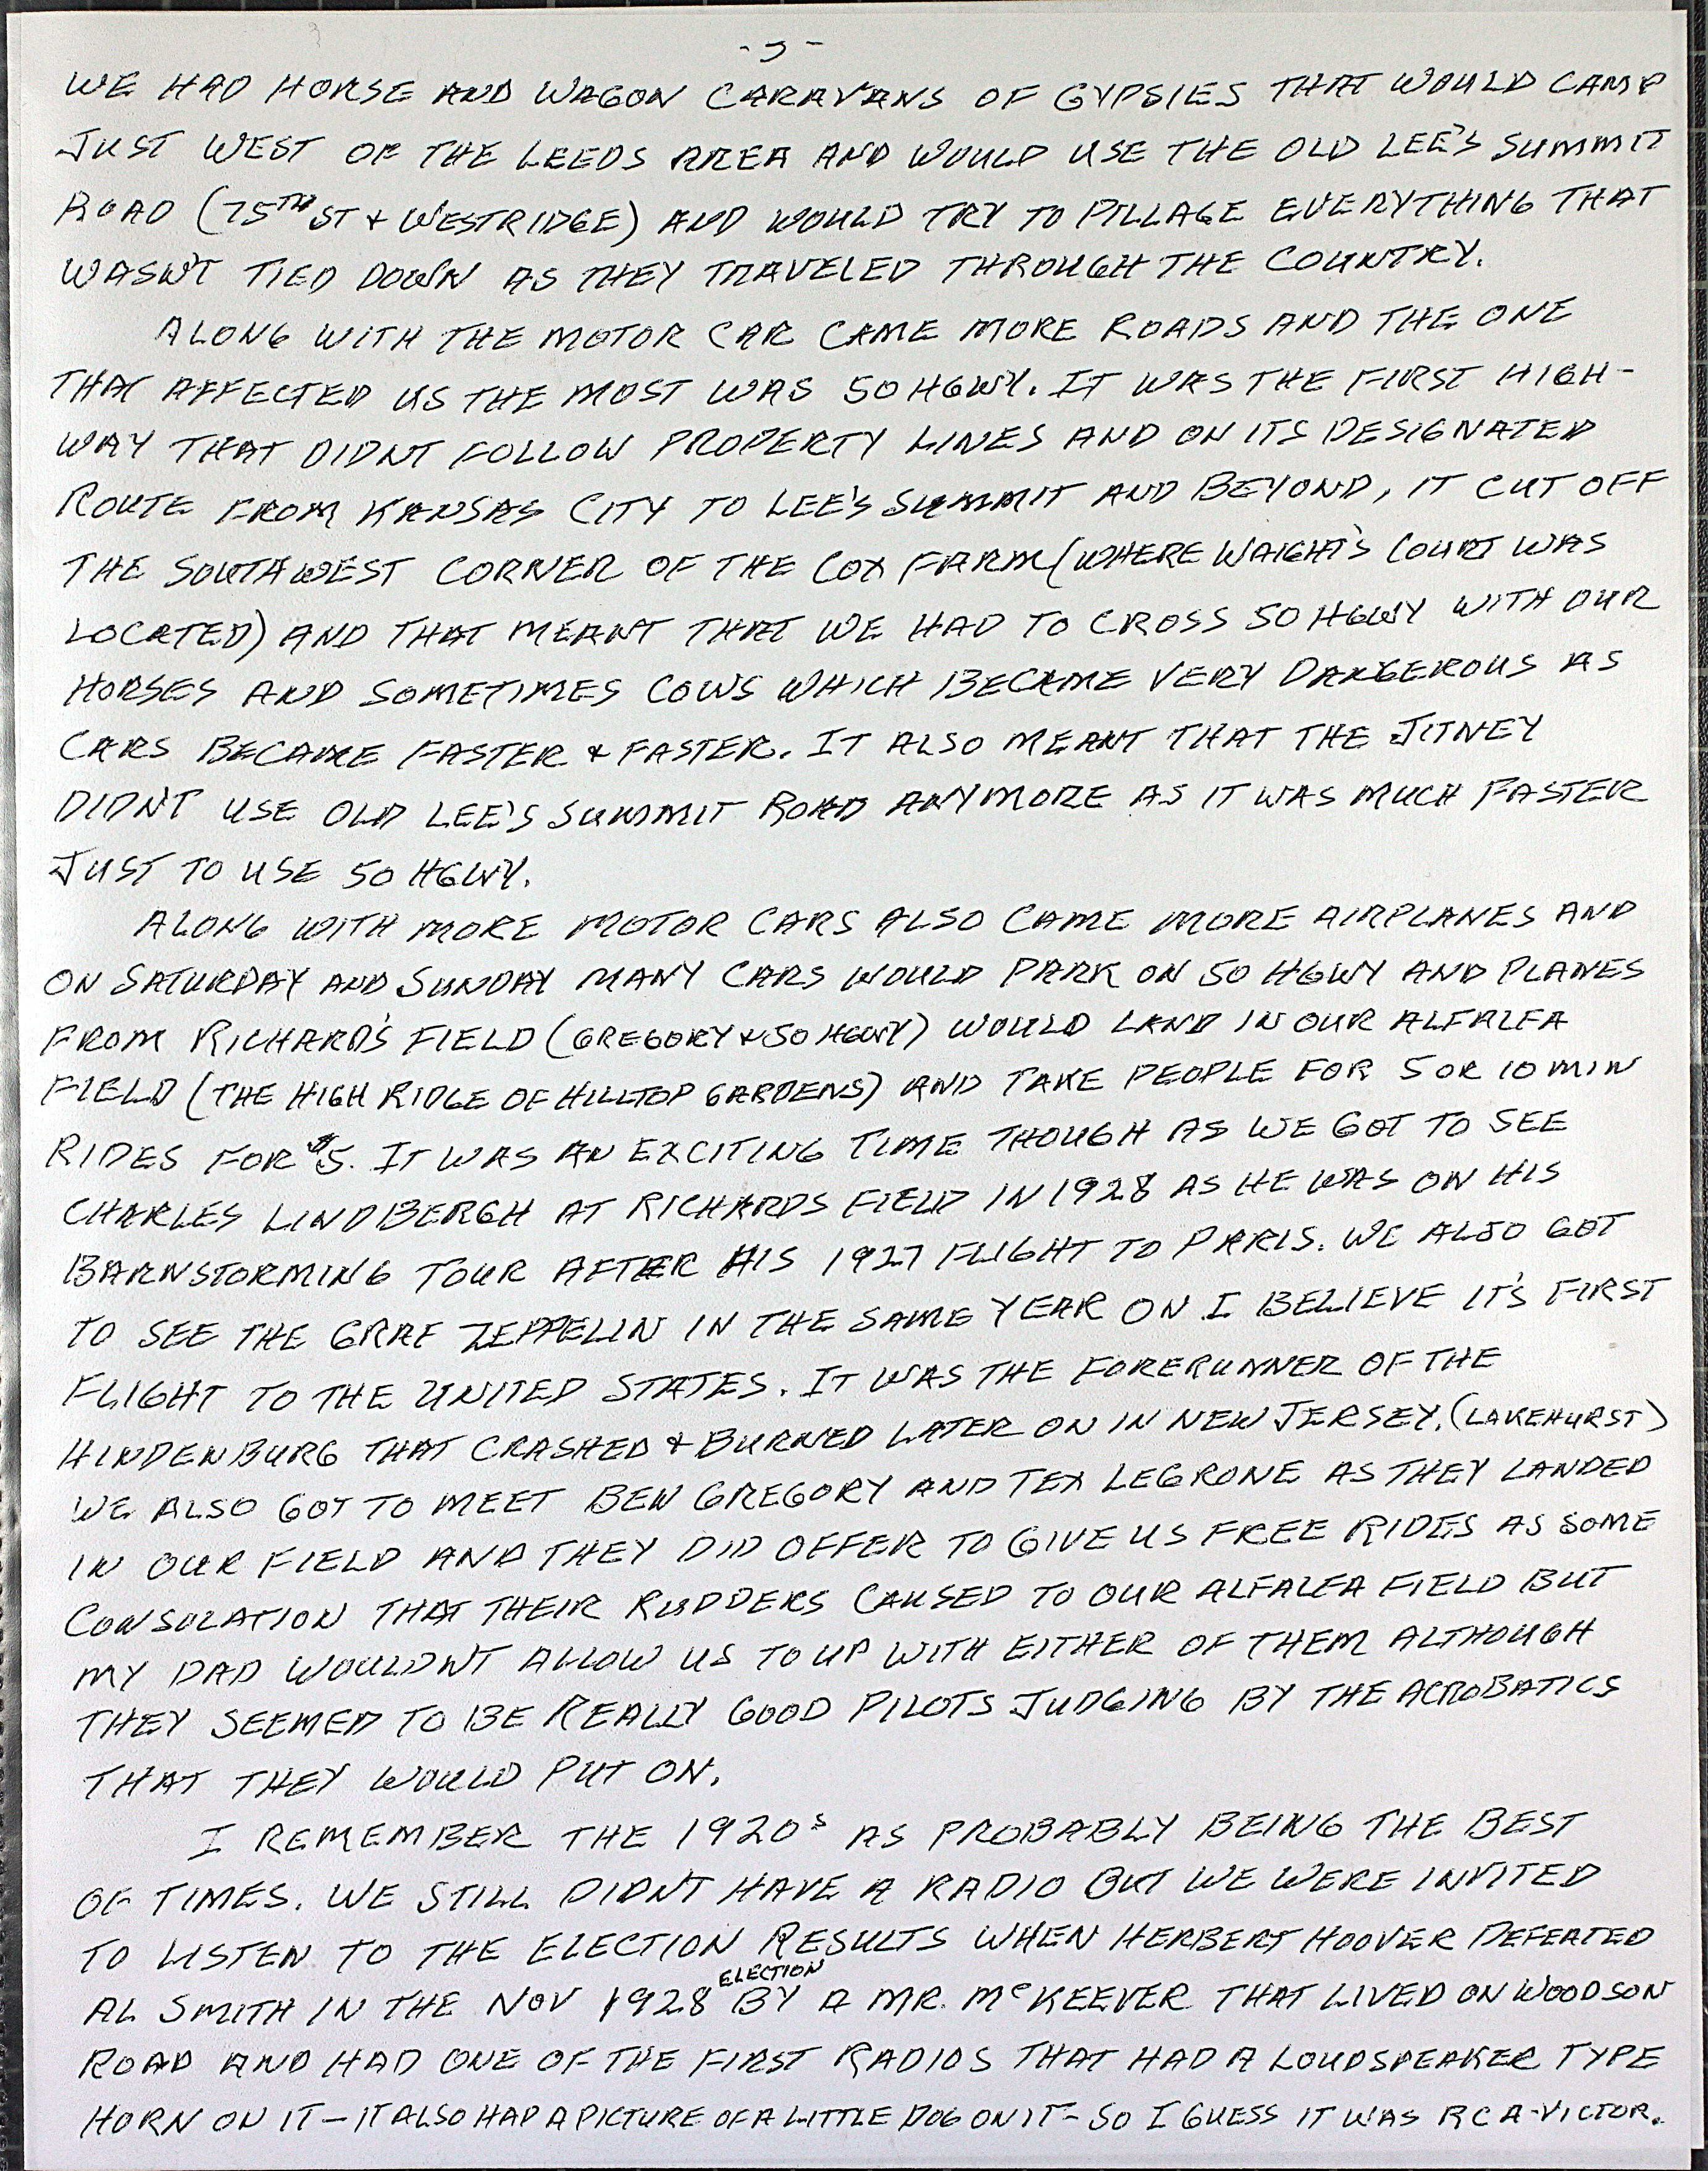 - 5 -
WE HAD HORSE AND WAGON CARAVANS OF GYPSIES THAT WOULD CAMP
JUST WEST OF THE LEEDS AREA AND WOULD USE THE OLD LEE'S SUMMIT
ROAD (75TH ST & WESTRIDGE) AND WOULD TRY TO PILLAGE EVERYTHING THAT
WASN'T TIED DOWN AS THEY TRAVELED THROUGH THE COUNTRY.
ALONG WITH THE MOTOR CAR CAME MORE ROADS AND THE ONE
THAT AFFECTED US THE MOST WAS 50 HGWY. IT WAS THE FIRST HIGH-
WAY THAT DIDNT FOLLOW PROPERTY LINES AND ON ITS DESIGNATED
ROUTE FROM KANSAS CITY TO LEE'S SUMMIT AND BEYOND, IT CUT OFF
THE SOUTHWEST CORNER OF THE COX FARM (WHERE WAIGHT'S COURT WAS
LOCATED) AND THAT MEANT THAT WE HAD TO CROSS 50 HGWY WITH OUR
HORSES AND SOMETIMES COWS WHICH BECAME VERY DANGEROUS AS
CARS BECAME FASTER & FASTER. IT ALSO MEANT THAT THE JITNEY
DIDN'T USE OLD LEE'S SUMMIT ROAD ANYMORE AS IT WAS MUCH FASTER
JUST TO USE 50 HGWY.
ALONG WITH MORE MOTOR CARS ALSO CAME MORE AIRPLANES AND
ON SATURDAY AND SUNDAY MANY CARS WOULD PARK ON 50 HGWY AND PLANES
FROM RICHARD'S FIELD (GREGORY & 50 HGWY) WOULD LAND IN OUR ALFALFA
FIELD (THE HIGH RIDGE OF HILLTOP GARDENS) AND TAKE PEOPLE FOR 5 OR 10 MIN
RIDES FOR $5. IT WAS AN EXCITING TIME THOUGH AS WE GOT TO SEE
CHARLES LINDBERGH AT RICHARDS FIELD IN 1928 AS HE WAS ON HIS
BARNSTORMING TOUR AFTER HIS 1927 FLIGHT TO PARIS. WE ALSO GOT
TO SEE THE GRAF ZEPPELIN IN THE SAME YEAR ON I BELIEVE IT'S FIRST
FLIGHT TO THE UNITED STATES. IT WAS THE FORERUNNER OF THE
HINDENBURG THAT CRASHED & BURNED LATER ON IN NEW JERSEY. (LAKEHURST)
WE ALSO GOT TO MEET BEN GREGORY AND TEX LEGRONE AS THEY LANDED
IN OUR FIELD AND THEY DID OFFER TO GIVE US FREE RIDES AS SOME
CONSOLATION THAT THEIR RUDDERS CAUSED TO OUR ALFALFA FIELD BUT
MY DAD WOULDNT ALLOW US TO UP WITH EITHER OF THEM ALTHOUGH
THEY SEEMED TO BE REALLY GOOD PILOTS JUDGING BY THE ACROBATICS
THAT THEY WOULD PUT ON.
I REMEMBER THE 1920S AS PROBABLY BEING THE BEST
OF TIMES. WE STILL DIDN'T HAVE A RADIO BUT WE WERE INVITED
TO LISTEN TO THE ELECTION RESULTS WHEN HERBERT HOOVER DEFEATED
AL SMITH IN THE NOV 1928 ELECTION BY A MR. McKEEVER THAT LIVED ON WOODSON
ROAD AND HAD ONE OF THE FIRST RADIOS THAT HAD A LOUDSPEAKER TYPE
HORN ON IT - IT ALSO HAD A PICTURE OF A LITTLE DOG ON IT - SO I GUESS IT WAS RCA-VICTOR.